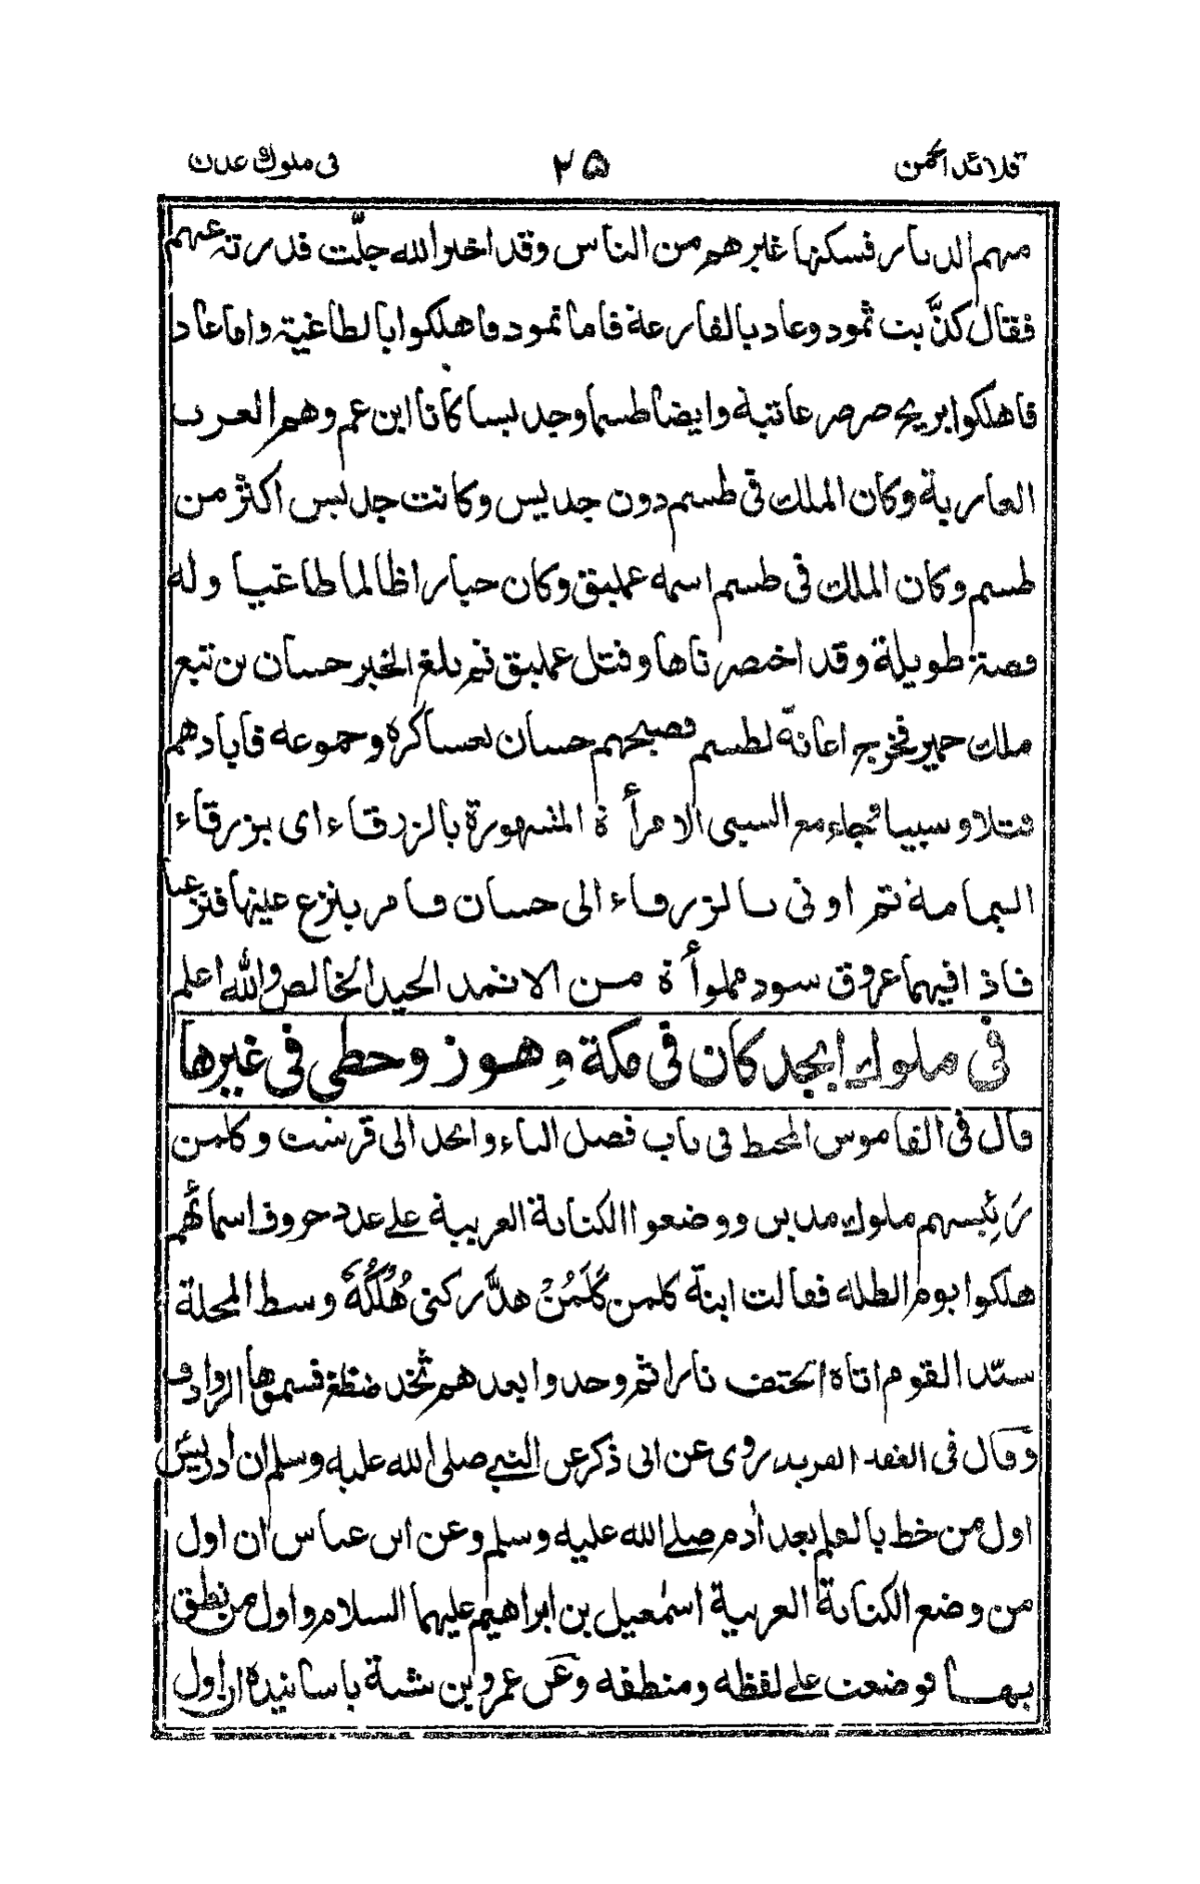 قلائد الجمن ٢٥ فى ملوك عدن
منهم الديار فسكنها غيرهم من الناس وقد اخبر الله جلّت قدرته عنهم
فقال كذَّبت ثمود وعاد بالقارعة فاما ثمود فاهلكوا بالطاغية واما عاد
فاهلكوا بريح صرصر عاتية وايضا طسما وجديسا كانا ابن عم وهم العرب
العاربة وكان الملك فى طسم دون جديس وكانت جديس اكثر من
طسم وكان الملك فى طسم اسمه عمليق وكان جبارا ظالما طاغيا وله
قصة طويلة وقد اختصرناها وقتل عمليق ثم بلغ الخبر حسان بن تبع
ملك حمير فخرج اعانة لطسم فصبحهم حسان بعساكره وجموعه فابادهم
قتلا وسبيا فجاء مع السبى الامرأة المشهورة بالزرقاء اى بزرقاء
اليمامة ثم اوتى بالزرقاء الى حسان فامر بنزع عينها فنزعها
فاذا فيهما عروق سود مملوأة من الاثمد الجيد الخالص والله اعلم
فى ملوك ابجد كان فى مكة وهوز وحطى فى غيرها
قال فى القاموس المحيط فى باب فصل الباء وابجد الى قرشت وكلمن
رَئِيسهم ملوك مدين ووضعوا الكتابة العربية على عدد حروف اسمائهم
هلكوا يوم الظله فقالت ابنة كلمن كَلَمُنْ هدَّ ركنى هُلْكُهُ وسط المحلة
سيّد القوم اتاه الحتف نارا ثم وجدوا بعدهم ثخذ ضظغ فسموها الروادف
وقال فى العقد الفريد روى عن ابى ذكر عن النبى صلى الله عليه وسلم ان ادريس
اول من خط بالقلم بعد آدم صلى الله عليه وسلم وعن ابن عباس ان اول
من وضع الكتابة العربية اسمٰعيل بن ابراهيم عليهما السلام واول من نطق
بها فوضعت على لفظه ومنطقه وعن عمرو بن شبة باسانيده ان اول